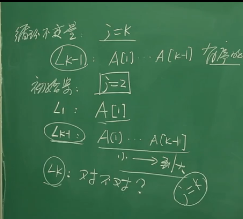 循环不变量： j=k
L_{k-1}： A[1] … A[k-1] 有序
初始结果： j=2
L_1： A[1]
L_{k-1}： A[1] … A[k-1]
小 → 大
L_k： 对不对？
j=k